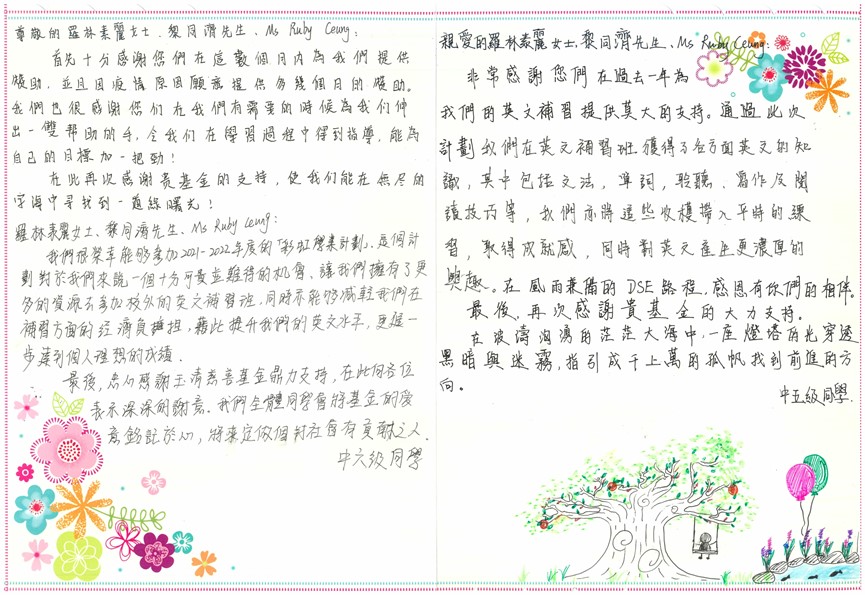 尊敬的羅林素麗女士、黎同濟先生、Ms Ruby Ceung:
首先十分感謝您們在這數個月內為我們提供
援助，並且因疫情原因願意提供多幾個月的援助。
我們也很感謝您们在我們有需要的時候為我们伸
出一雙幫助的手，令我们在學習過程中得到指導，能為
自己的目標加一把勁！
在此再次感謝貴基金的支持，使我們能在無尽的
字海中尋找到一道綠曙光！
羅林素麗女士、黎同濟先生、Ms Ruby Ceung:
我們很榮幸能夠參加2021-2022年度的「彩虹獎業計劃」。這個計
劃對於我們來說一個十分可貴並難得的机會、讓我們擁有了更
多的資源去參加校外的英文補習班，同時亦能够減輕我們在
補習方面的經濟負擔，藉此提升我們的英文水平，更進一
步達到個人理想的成績
最後，衷心感謝王清慈善基金鼎力支持，在此向各位
表示深深的謝意。我們全體同學會將基金的愛
意銘記於心，將來定做個對社會有貢獻之人.
中六級同學
親愛的羅林素麗女士、黎同濟先生、Ms Ruby Ceung:
非常感謝您們在過去一年為
我們的英文補習提供莫大的支持。通過此次
計劃我們在英文補習班獲得了各方面英文的知
識，其中包括文法，單詞，聆聽、寫作及閱
讀技巧等，我們亦將這些收穫帶入平時的練
習，取得成就感，同時對英文產生更濃厚的
興趣。在風雨兼備的DSE路程，感恩有你們的相伴。
最後、再次感謝貴基金的大力支持。
在波濤洶湧的茫茫大海中，一座燈塔的光穿透
黑暗與迷霧，指引成千上萬的孤帆找到前進的方
向。
中五級同學